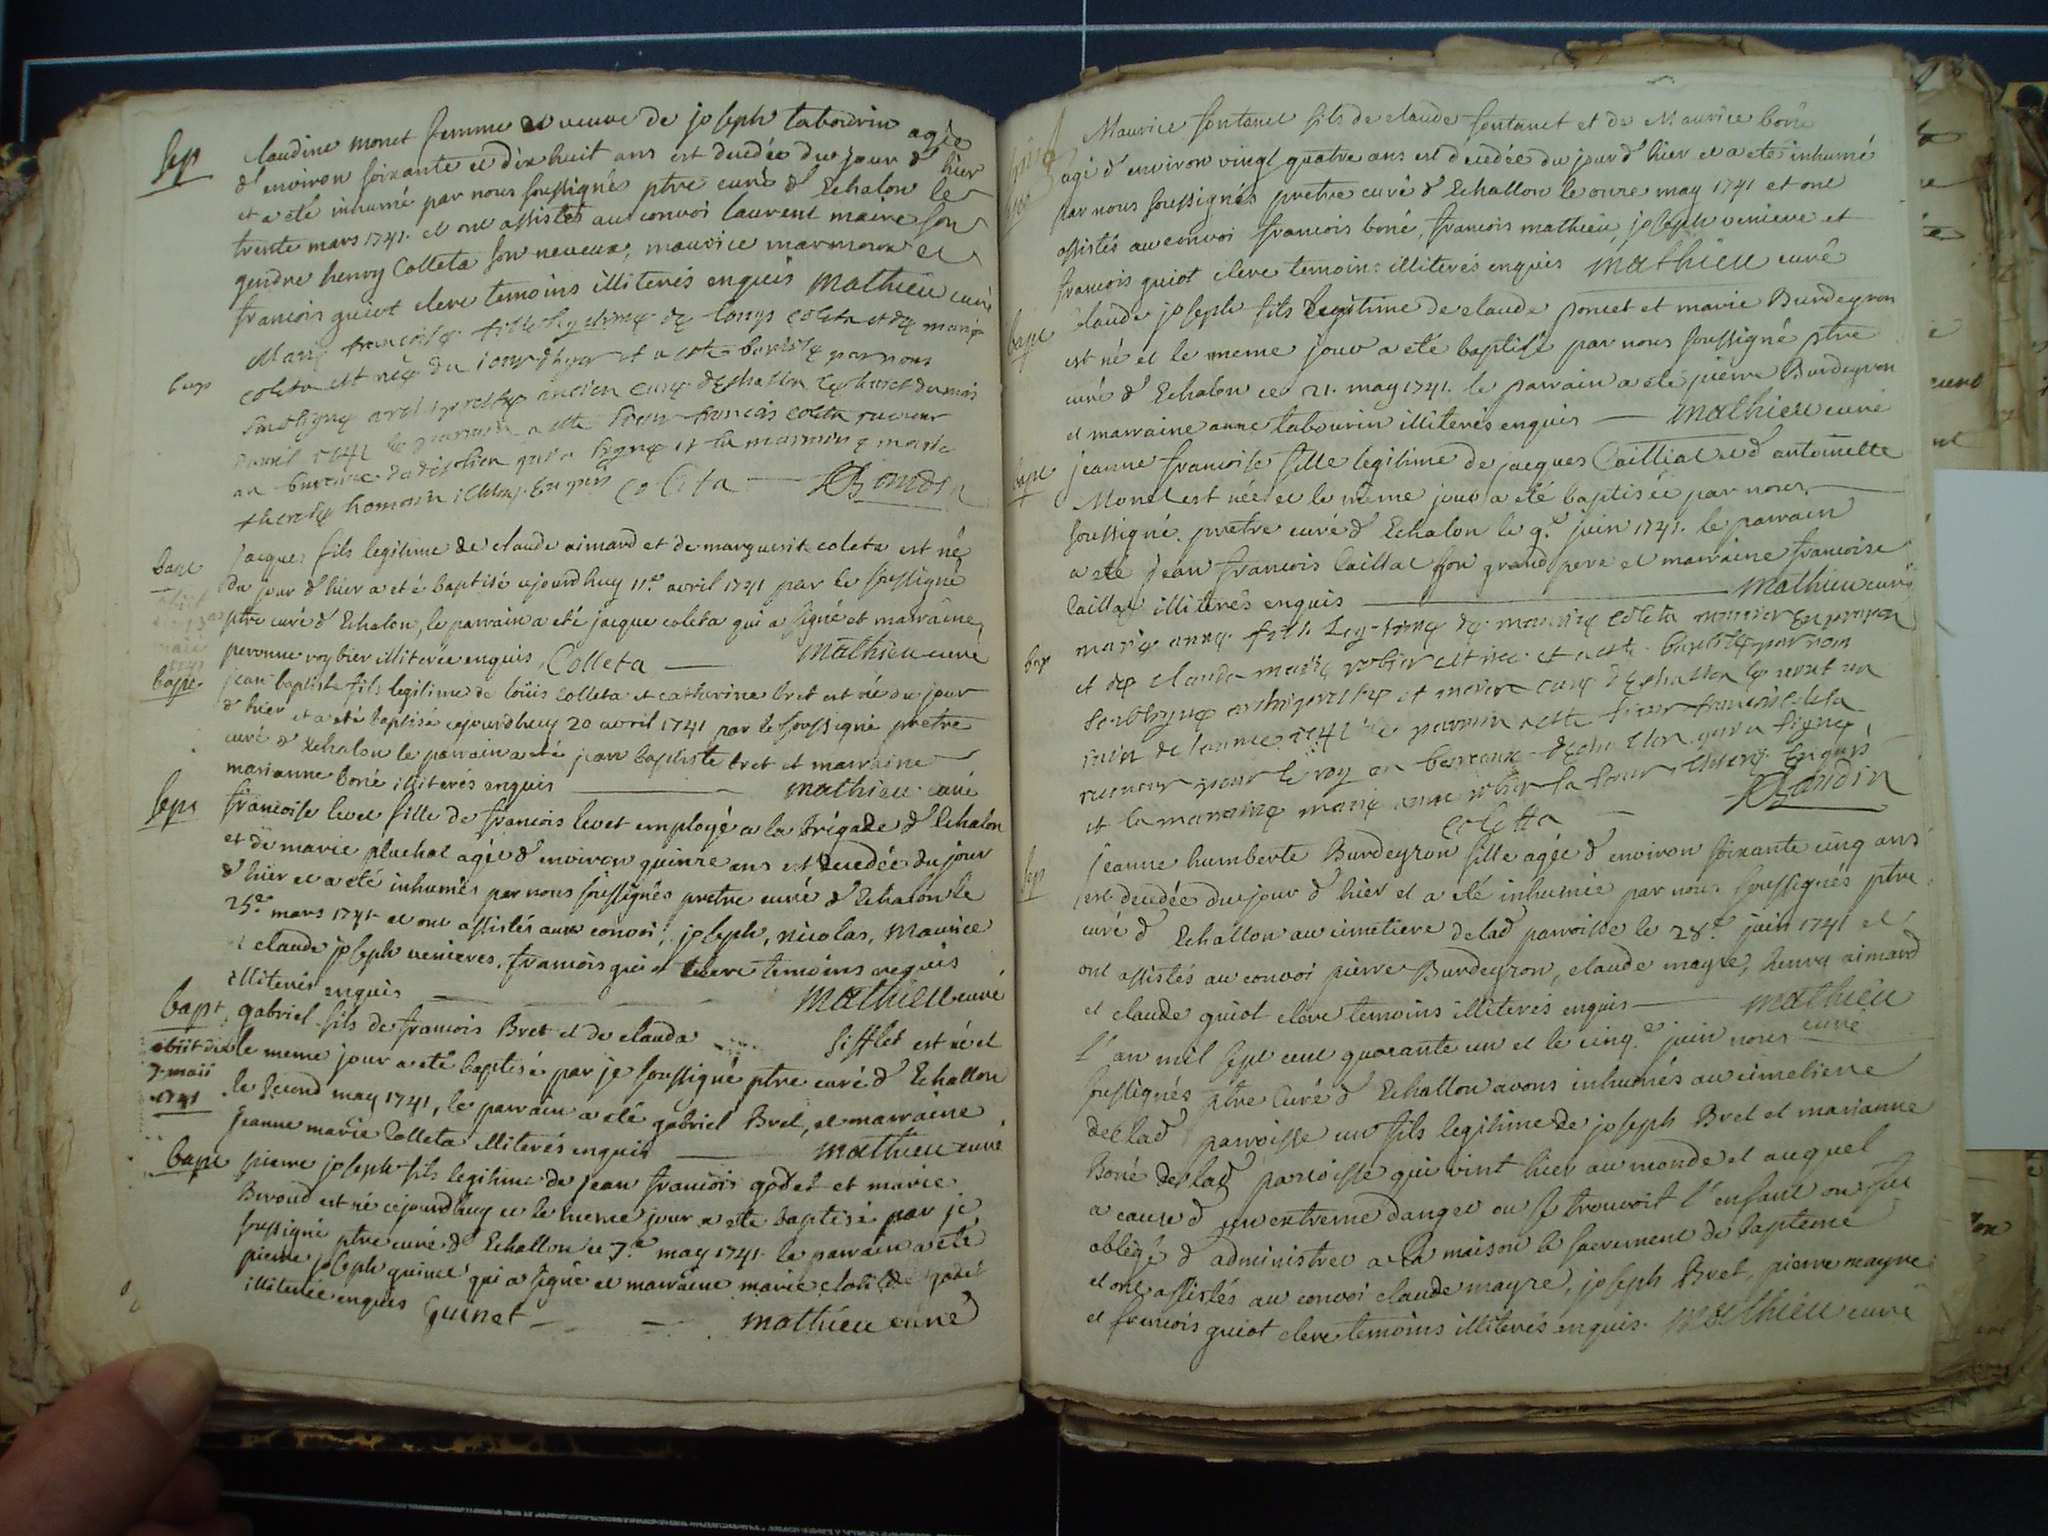 Sep
Claudine monet femme et veuve de joseph tabourin agée
d'environ soixante et dix huit ans est decedée du jour d'hier
et a eté inhumé par nous soussigné ptre curé d'Echalon le
trente mars 1741. et ont assistés au convoi laurent maire son
gendre henry Colleta son neveux, maurice marmoux et
francois guiot clerc temoins illiterés enquis Mathieu curé
bap
Marie francoise fille legitime de louys coleta et de marie
coleta est née du jourdhyer et a esté baptisé par nous
soubsigné archiprestre ancien curé d'Echallon le huict du mois
d'avril 1741 le parrain a esté sieur francois coleta receveur
au bureau qui a signé et la marraine marie
enquis coleta RBondin
bapt
jacque fils legitime de claude aimard et de marguerite coleta est né
du jour d'hier a eté baptisé cejourdhuy 11.e avril 1741 par le soussigné
ptre curé d'Echalon, le parrain a eté jacque coleta qui a signé et marraine
peronne roybier illiterée enquis Colleta — Mathieu curé
bapt
jean baptiste fils legitime de loüis Colleta et catherine bret est né du jour
d'hier et a eté baptisé cejourdhuy 20 avril 1741 par le soussigné pretre
curé d'Echalon le parrain a eté jean baptiste bret et marraine
marianne boné illiterés enquis — mathieu curé
Sept
francoise levet fille de francois levet employé a la brigade d'Echalon
et de marie pluchat agée d'environ quinze ans est decedée du jour
d'hier et a eté inhumés par nous soussignés pretre curé d'Echalon le
25.e mars 1741 et ont assistés aux convoi, joseph, nicolas, Maurice
et claude joseph venieres, francois guiot clerc temoins requis
illiterés enquis — Mathieu curé
bapt
gabriel fils de francois Bret et de clauda Sifflet est né et
obiit die
le meme jour a eté baptisé par je soussigné ptre curé d'Echallon
7 maii
1741
le second may 1741, le parrain a eté gabriel Bret, et marraine
jeanne marie Colleta illiterés enquis — mathieu curé
bapt
pierre joseph fils legitime de jean francois godet et marie
Beroud est né cejourdhuy et le meme jour a eté baptisé par je
soussigné ptre curé d'Echallon ce 7.e may 1741. le parrain a eté
pierre joseph guinet qui a signé et marraine marie clotilde godet
illiterée enquis Guinet — mathieu curé
Maurice fontanet fils de claude fontanet et de Maurice boné
agé d'environ vingt quatre ans est decedée du jour d'hier et a eté inhumé
par nous soussignés pretre curé d'Echallon le onze may 1741 et ont
assistés au convoi francois boné, francois mathieu, joseph veniere et
francois guiot clerc temoins illiterés enquis Mathieu curé
bapt
claude joseph fils legitime de claude poncet et marie Burdeyron
est né et le meme jour a eté baptisé par nous soussigné ptre
curé d'Echalon ce 21. may 1741. le parrain a eté pierre Burdeyron
et marraine anne tabourin illiterés enquis — mathieu curé
bapt
jeanne francoise fille legitime de jacques Cailliat et d'antoinette
Monet est née et le même jour a eté baptisée par nous
soussigné pretre curé d'Echalon le 9.e juin 1741. le parrain
a eté jean francois Caillat son grand pere et marraine francoise
Caillat illiterés enquis — Mathieu curé
bap
marie anne fille legitime de maurice coleta
et de clauda marie robier est née et a esté baptisée par nous
soubsigné archiprestre et ancien curé d'Echallon le vent un
juin de l'année 1741 le parrain a esté sieur francois coleta
receveur pour le roy au bureau qui a signé
et la marraine marie anne robier sa soeur enquis
coletta — RBondin
sep
jeanne humberte Burdeyron fille agée d'environ soixante cinq ans
est decedée du jour d'hier et a eté inhumée par nous soussignés ptre
curé d'Echallon au cimetiere delad parroisse le 28.e juin 1741 et
ont assistés au convoi pierre Burdeyron, claude mayre, henry aimard
et claude guiot clerc temoins illiterés enquis — mathieu
curé
l'an mil sept cent quarante un et le cinq.e juin nous
soussignés ptre Curé d'Echallon avons inhumés au cimetiere
de lad parroisse un fils legitime de joseph Bret et marianne
Boné de lad parroisse qui vint hier au monde et auquel
a cause d'un extreme danger ou se trouvoit l'enfant on fut
obligé d'administrer a la maison le sacrement de bapteme
et ont assistés au convoi claude mayre, joseph Bret, pierre mayre
et francois guiot clerc temoins illiterés enquis. Mathieu curé